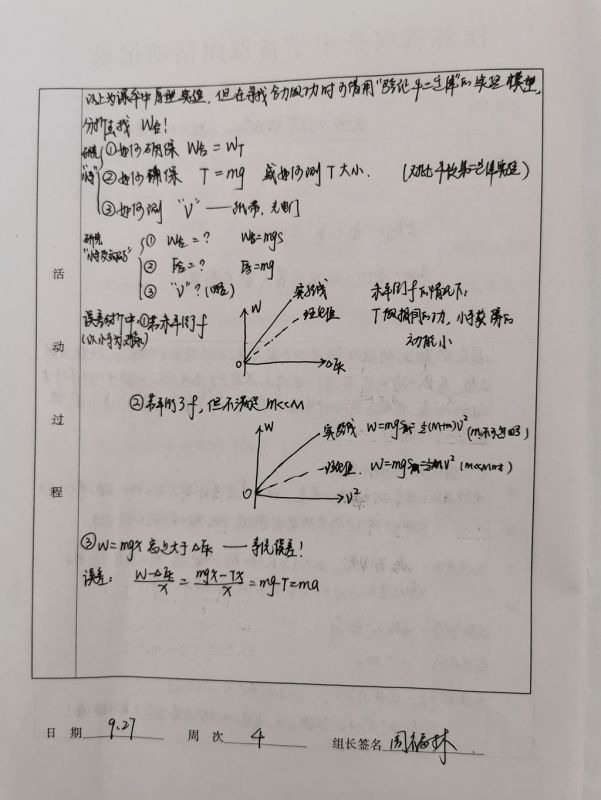 以上为课本中原型实验，但在寻找合力做功时可借用"验证牛二定律"的实验模型，
分析去找 W合！
研究"小车"
①如何确保 W合 = WT
②如何确保 T = mg 或如何测 T 大小． (对比牛顿第二定律实验)
③如何测 "V" —— 纸带、光电门
研究
① W合 = ? W合 = mgs
② F合 = ? F合 = mg
③ "V" ? (略)
误差分析中 ①若未平衡 f
(以小车为对象)
W
实验线
理论值
0
ΔEk
未平衡 f 的情况下：
T 做相同的功，小车获得的
动能小
②若平衡了 f，但不满足 m<<M
W
实验线 W=mgs=½(M+m)V²
理论值． W=mgs=½MV² (m<<M时)
0
V²
③ W=mgx 总是大于 ΔEk —— 系统误差！
误差： (W-ΔEk)/x = (mgx-Tx)/x = mg-T = ma
活
动
过
程
日 期 9.27 周 次 4 组长签名